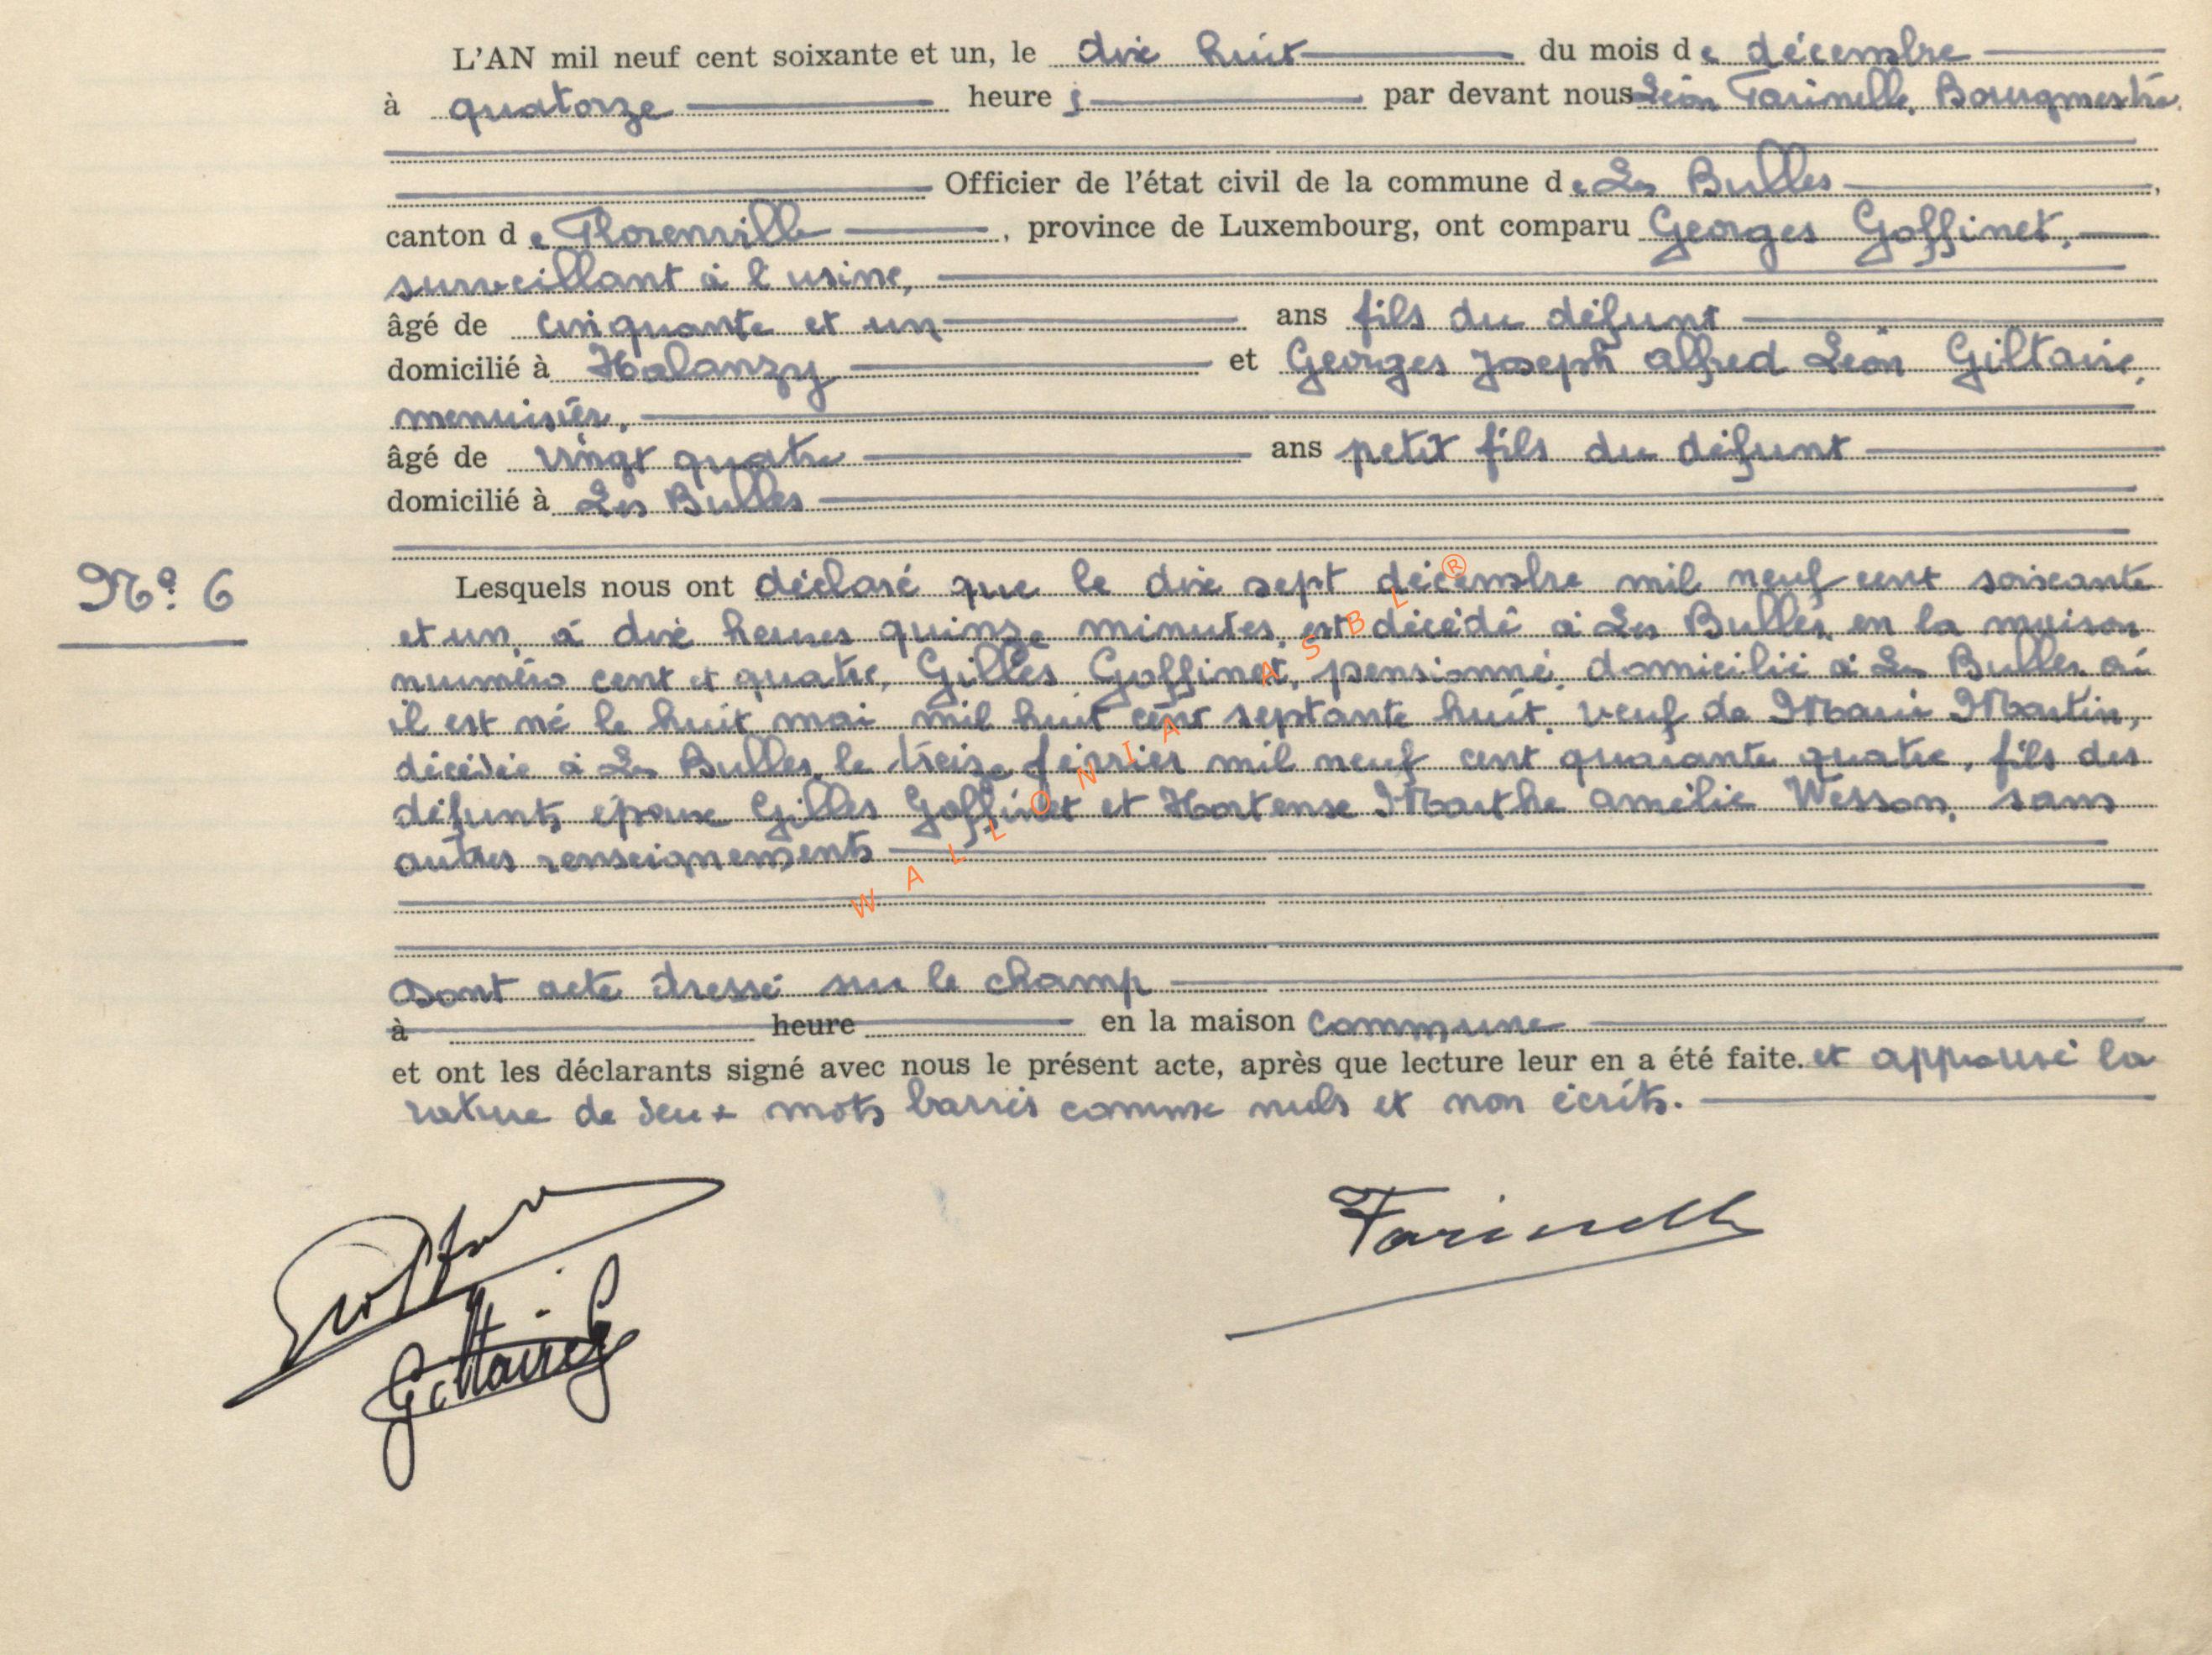 L'AN mil neuf cent soixante et un, le dix huit du mois de décembre
à quatorze heures par devant nous Léon Farinelle, Bourgmestre,
Officier de l'état civil de la commune de Les Bulles,
canton de Florenville, province de Luxembourg, ont comparu Georges Goffinet,
surveillant à l'usine,
âgé de cinquante et un ans fils du défunt
domicilié à Halanzy et Georges Joseph Alfred Léon Giltaire,
menuisier,
âgé de vingt quatre ans petit fils du défunt
domicilié à Les Bulles
N° 6
Lesquels nous ont déclaré que le dix sept décembre mil neuf cent soixante
et un, à dix heures quinze minutes, est décédé à Les Bulles, en la maison
numéro cent et quatre, Gilles Goffinet, pensionné, domicilié à Les Bulles où
il est né le huit mai mil huit cent septante huit, veuf de Marie Martin,
décédée à Les Bulles, le treize février mil neuf cent quarante quatre, fils des
défunts époux Gilles Goffinet et Hortense Marthe Amélie Wesson, sans
autres renseignements
WALLONIA ASBL ®
Dont acte dressé sur le champ
à heure en la maison commune
et ont les déclarants signé avec nous le présent acte, après que lecture leur en a été faite. et approuvé la
rature de deux mots barrés comme nuls et non écrits.
Farinelle
Giltaire G